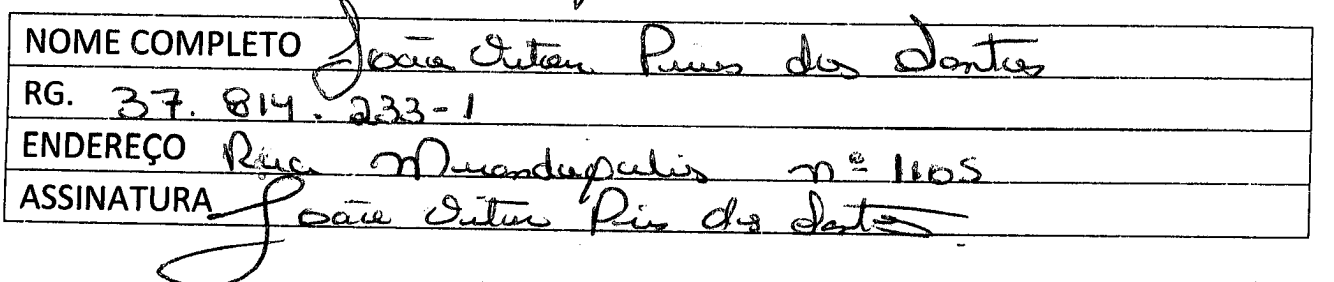 NOME COMPLETO João Vitor Pires dos Santos
RG. 37.814.233-1
ENDEREÇO Rua Mirandopolis nº 1105
ASSINATURA João Vitor Pires dos Santos